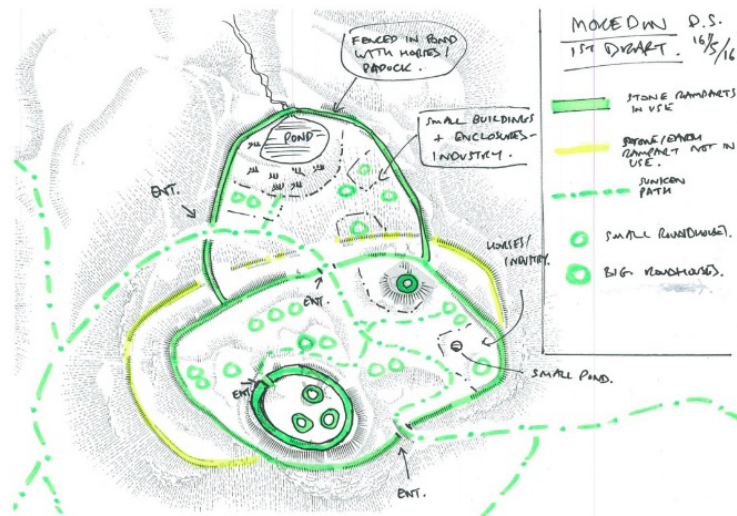 MOREDUN D.S.
1ST DRAFT. 16/5/16
STONE RAMPARTS
IN USE
STONE/EARTH
RAMPART NOT IN
USE.
SUNKEN
PATH
SMALL ROUNDHOUSES.
BIG ROUNDHOUSES.
FENCED IN POND
WITH HORSES/
PADOCK.
SMALL BUILDINGS
+ ENCLOSURES-
INDUSTRY.
POND
ENT.
HORSES/
INDUSTRY.
ENT.
ENT.
SMALL POND.
ENT.